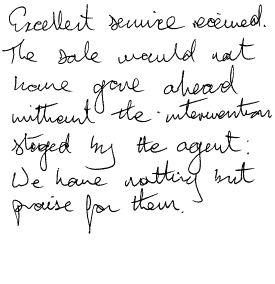 Excellent service received.
The sale would not
have gone ahead
without the intervention
staged by the agent.
We have nothing but
praise for them.